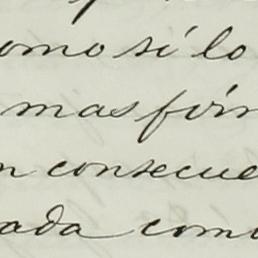 como si lo
mas fir
n consecue
ada como